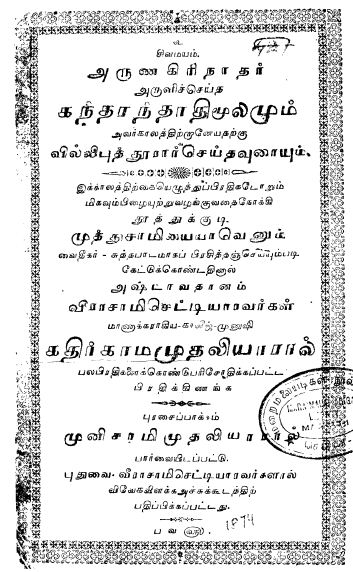 உ
சிவமயம்.
அருணகிரிநாதர்
அருளிச்செய்த
கந்தரந்தாதிமூலமும்
அவர்காலத்திற்றானேயதற்கு
வில்லிபுத்தூரார்செய்தவுரையும்.
இக்காலத்திற்கையெழுத்துப்பிரதிகடோறும்
மிகவும்பிழையுற்றுவழங்குவதைநோக்கி
தூத்துக்குடி
முத்துசாமியையரவெனும்
வைதிகர் - சுத்தபாடமாகப் பிரசித்தஞ்செய்யும்படி
கேட்டுக்கொண்டதினால்
அஷ்டாவதானம்
வீராசாமிசெட்டியாரவர்கள்
மாணாக்கராகிய-காலேஜ்-முனுஷி
கதிர்காமமுதலியாரால்
பலபிரதிகளைக்கொண்டுபரிசோதிக்கப்பட்ட
பிரதிக்கிணங்க
புரசைப்பாக்கம்
முனிசாமிமுதலியாரால்
பார்வையிடப்பட்டு
புதுவை-வீராசாமிசெட்டியாரவர்களால்
விவேகவிளக்கஅச்சுக்கூடத்திற்
பதிப்பிக்கப்பட்டது.
பவ
1874